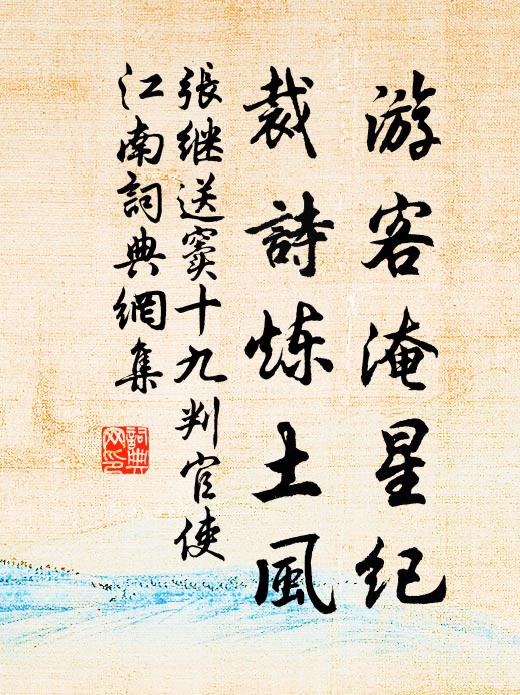 游客淹星纪
裁詩炼土風
張继送竇十九判官使
江南詞典網集
詞典